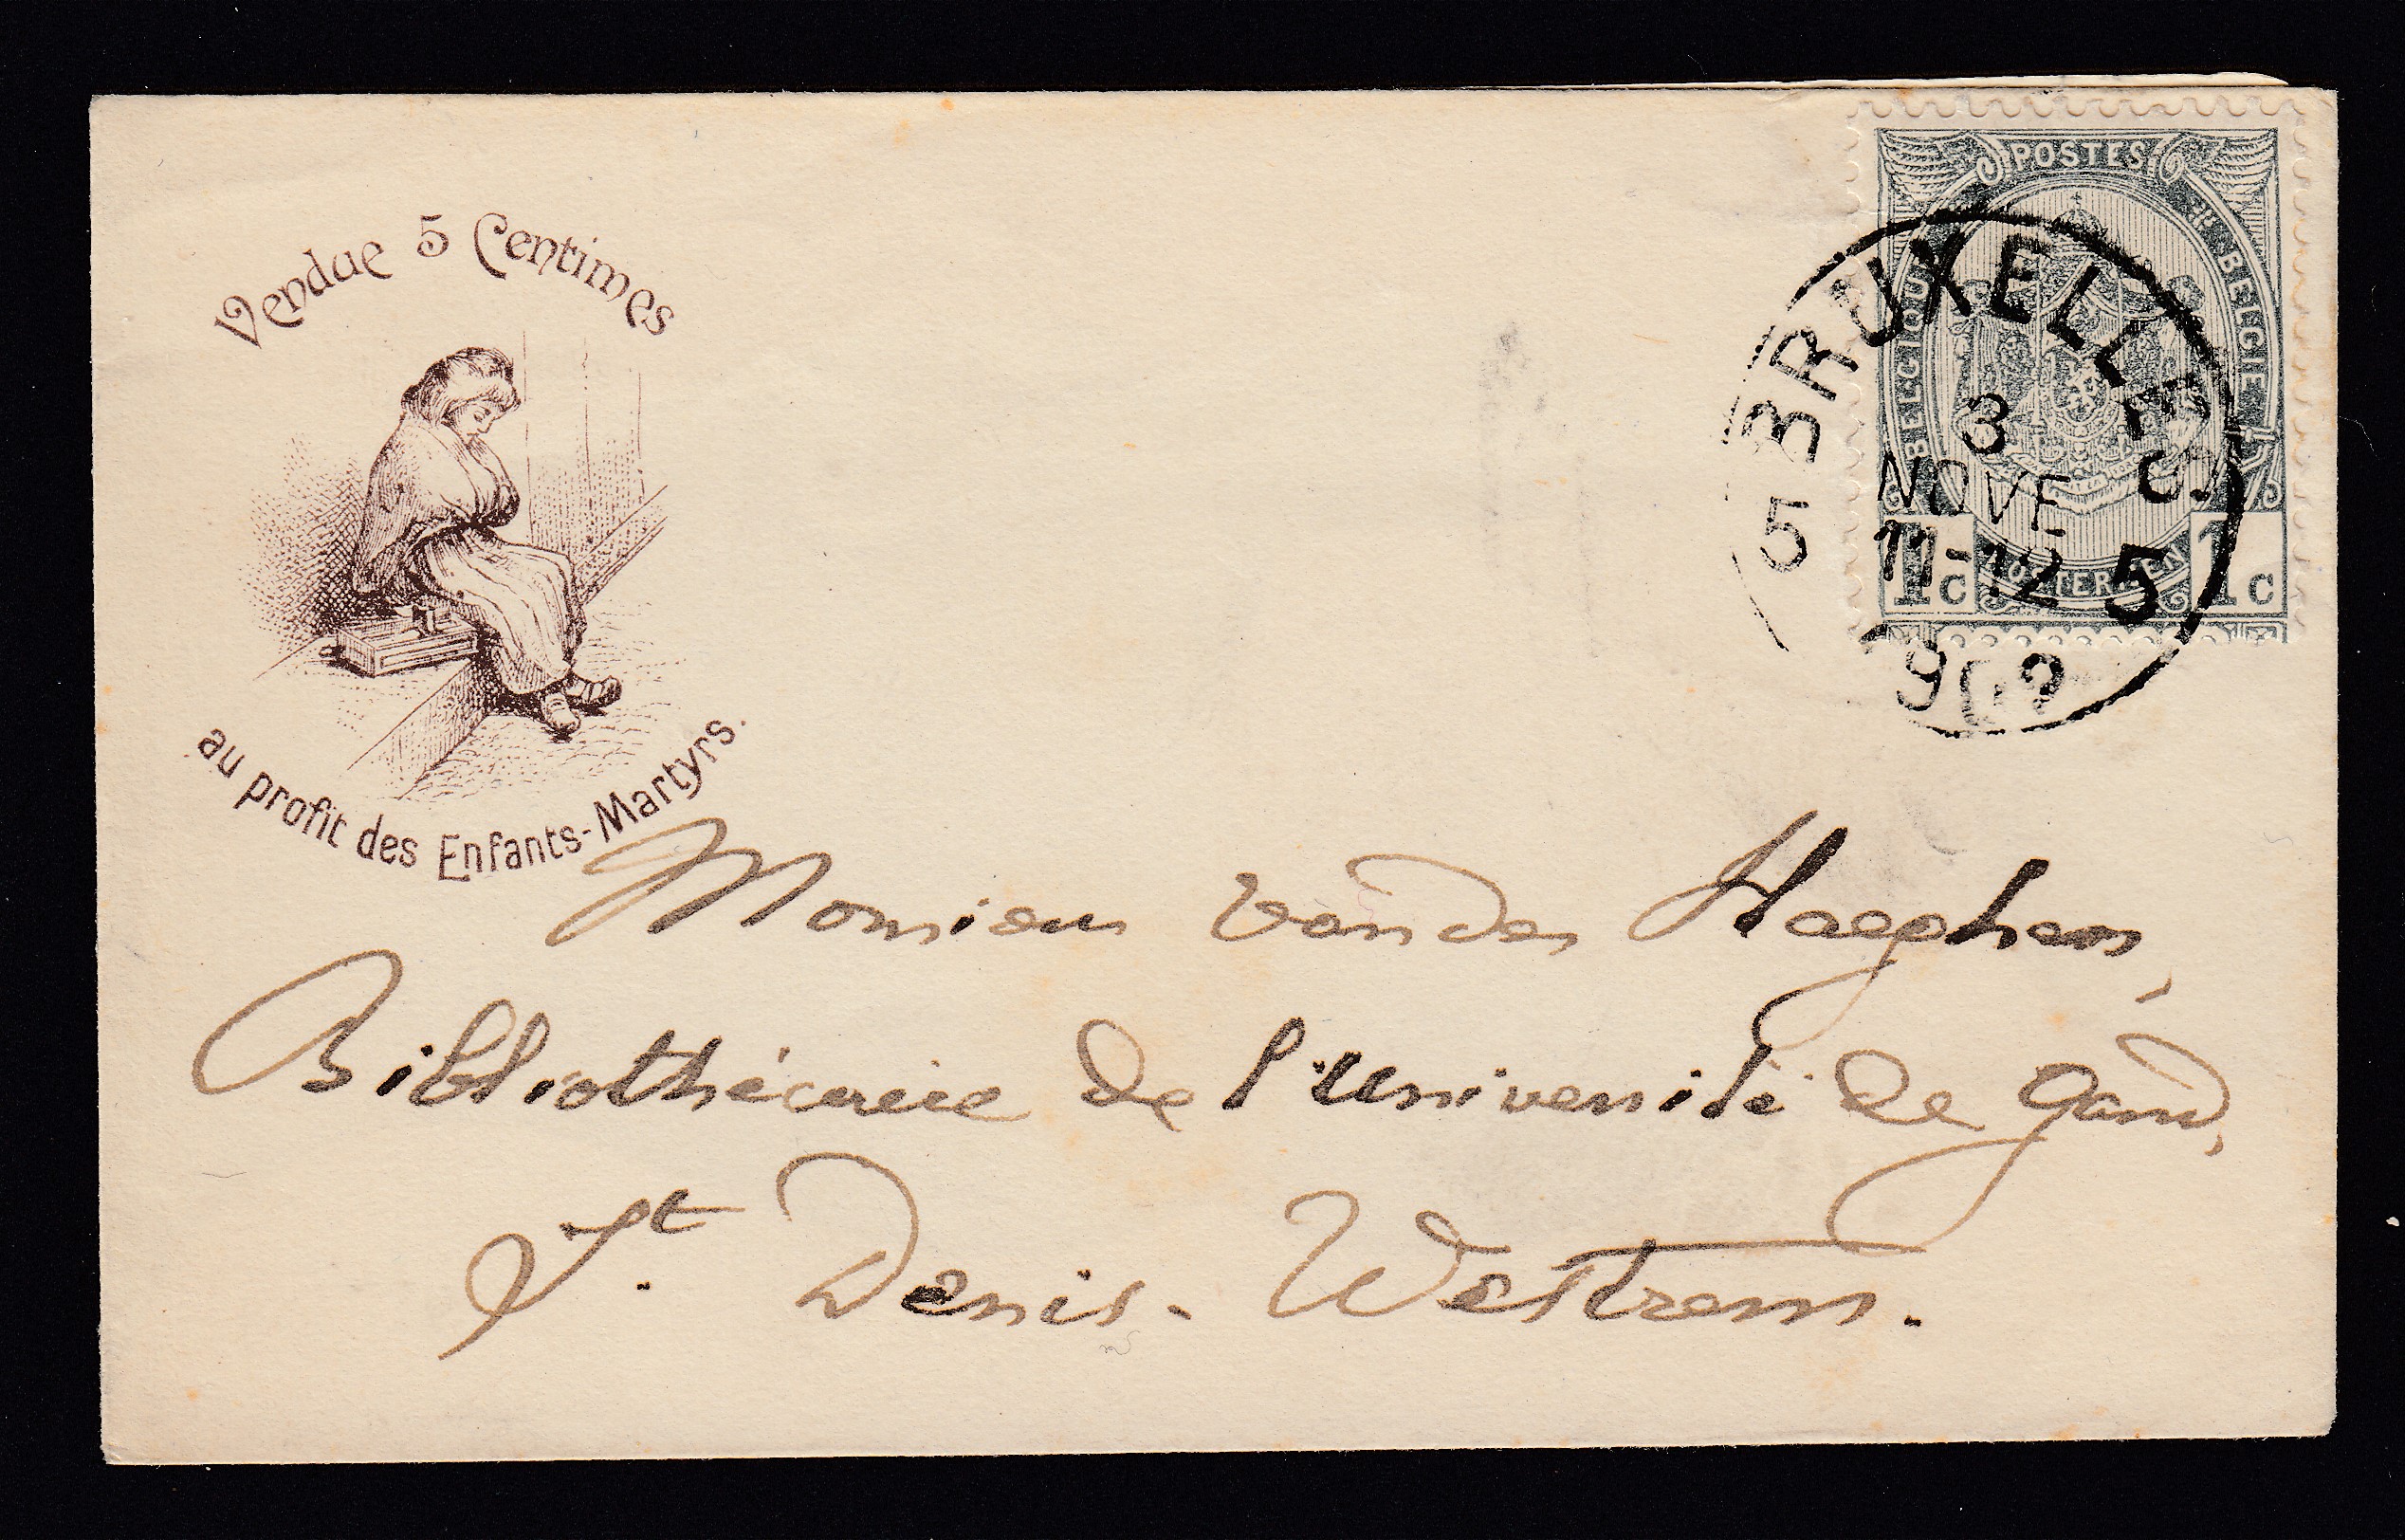 Vendue 5 Centimes
au profit des Enfants-Martyrs.
POSTES
BELGIQUE
BELGIE
POSTERIJEN
1c 1c
BRUXELLES
3
NOVE
11-12
5 5
1902
Monsieur Vander Haeghen,
Bibliothécaire de l'Université de Gand,
St. Denis-Westrem.